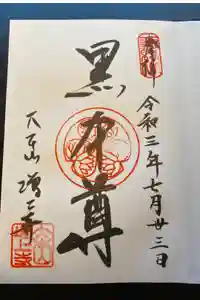 奉拝
令和三年七月廿三日
黒本尊
大本山 増上寺